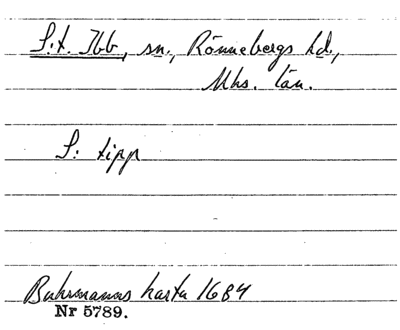 S:t. Ibb, sn., Rönnebergs hd,
Mhs. län.
S: tipp
Buhrmanns karta 1684
Nr 5789.